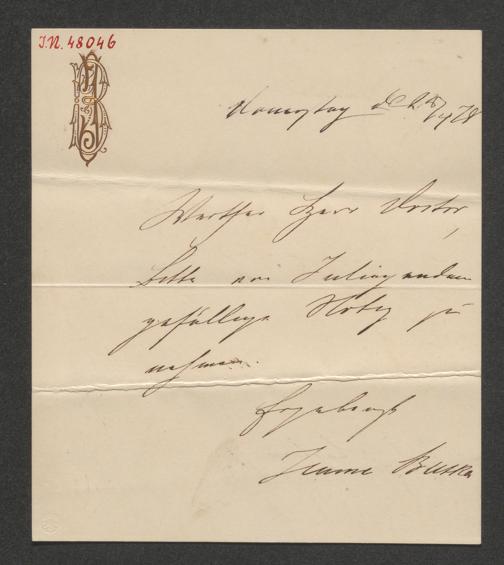 I.N. 48046
Donnerstag d. 24/1 78
Werther Herr Doctor,
bitte von Inliegendem
gefälligst Notiz zu
nehmen.
Ergebenst
Buska